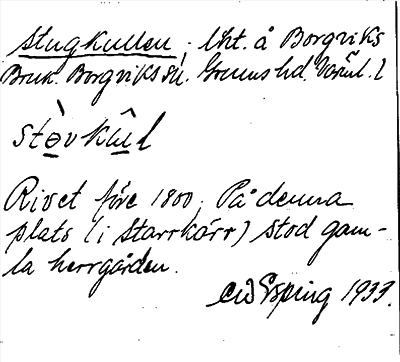 Stugkullen, lht. å Borgviks
Bruk. Borgviks sn. Grums hd. Värml. l
stòvkûl
Rivet före 1800, På denna
plats (i Starrkärr) stod gam-
la herrgården.
CW Esping 1933.